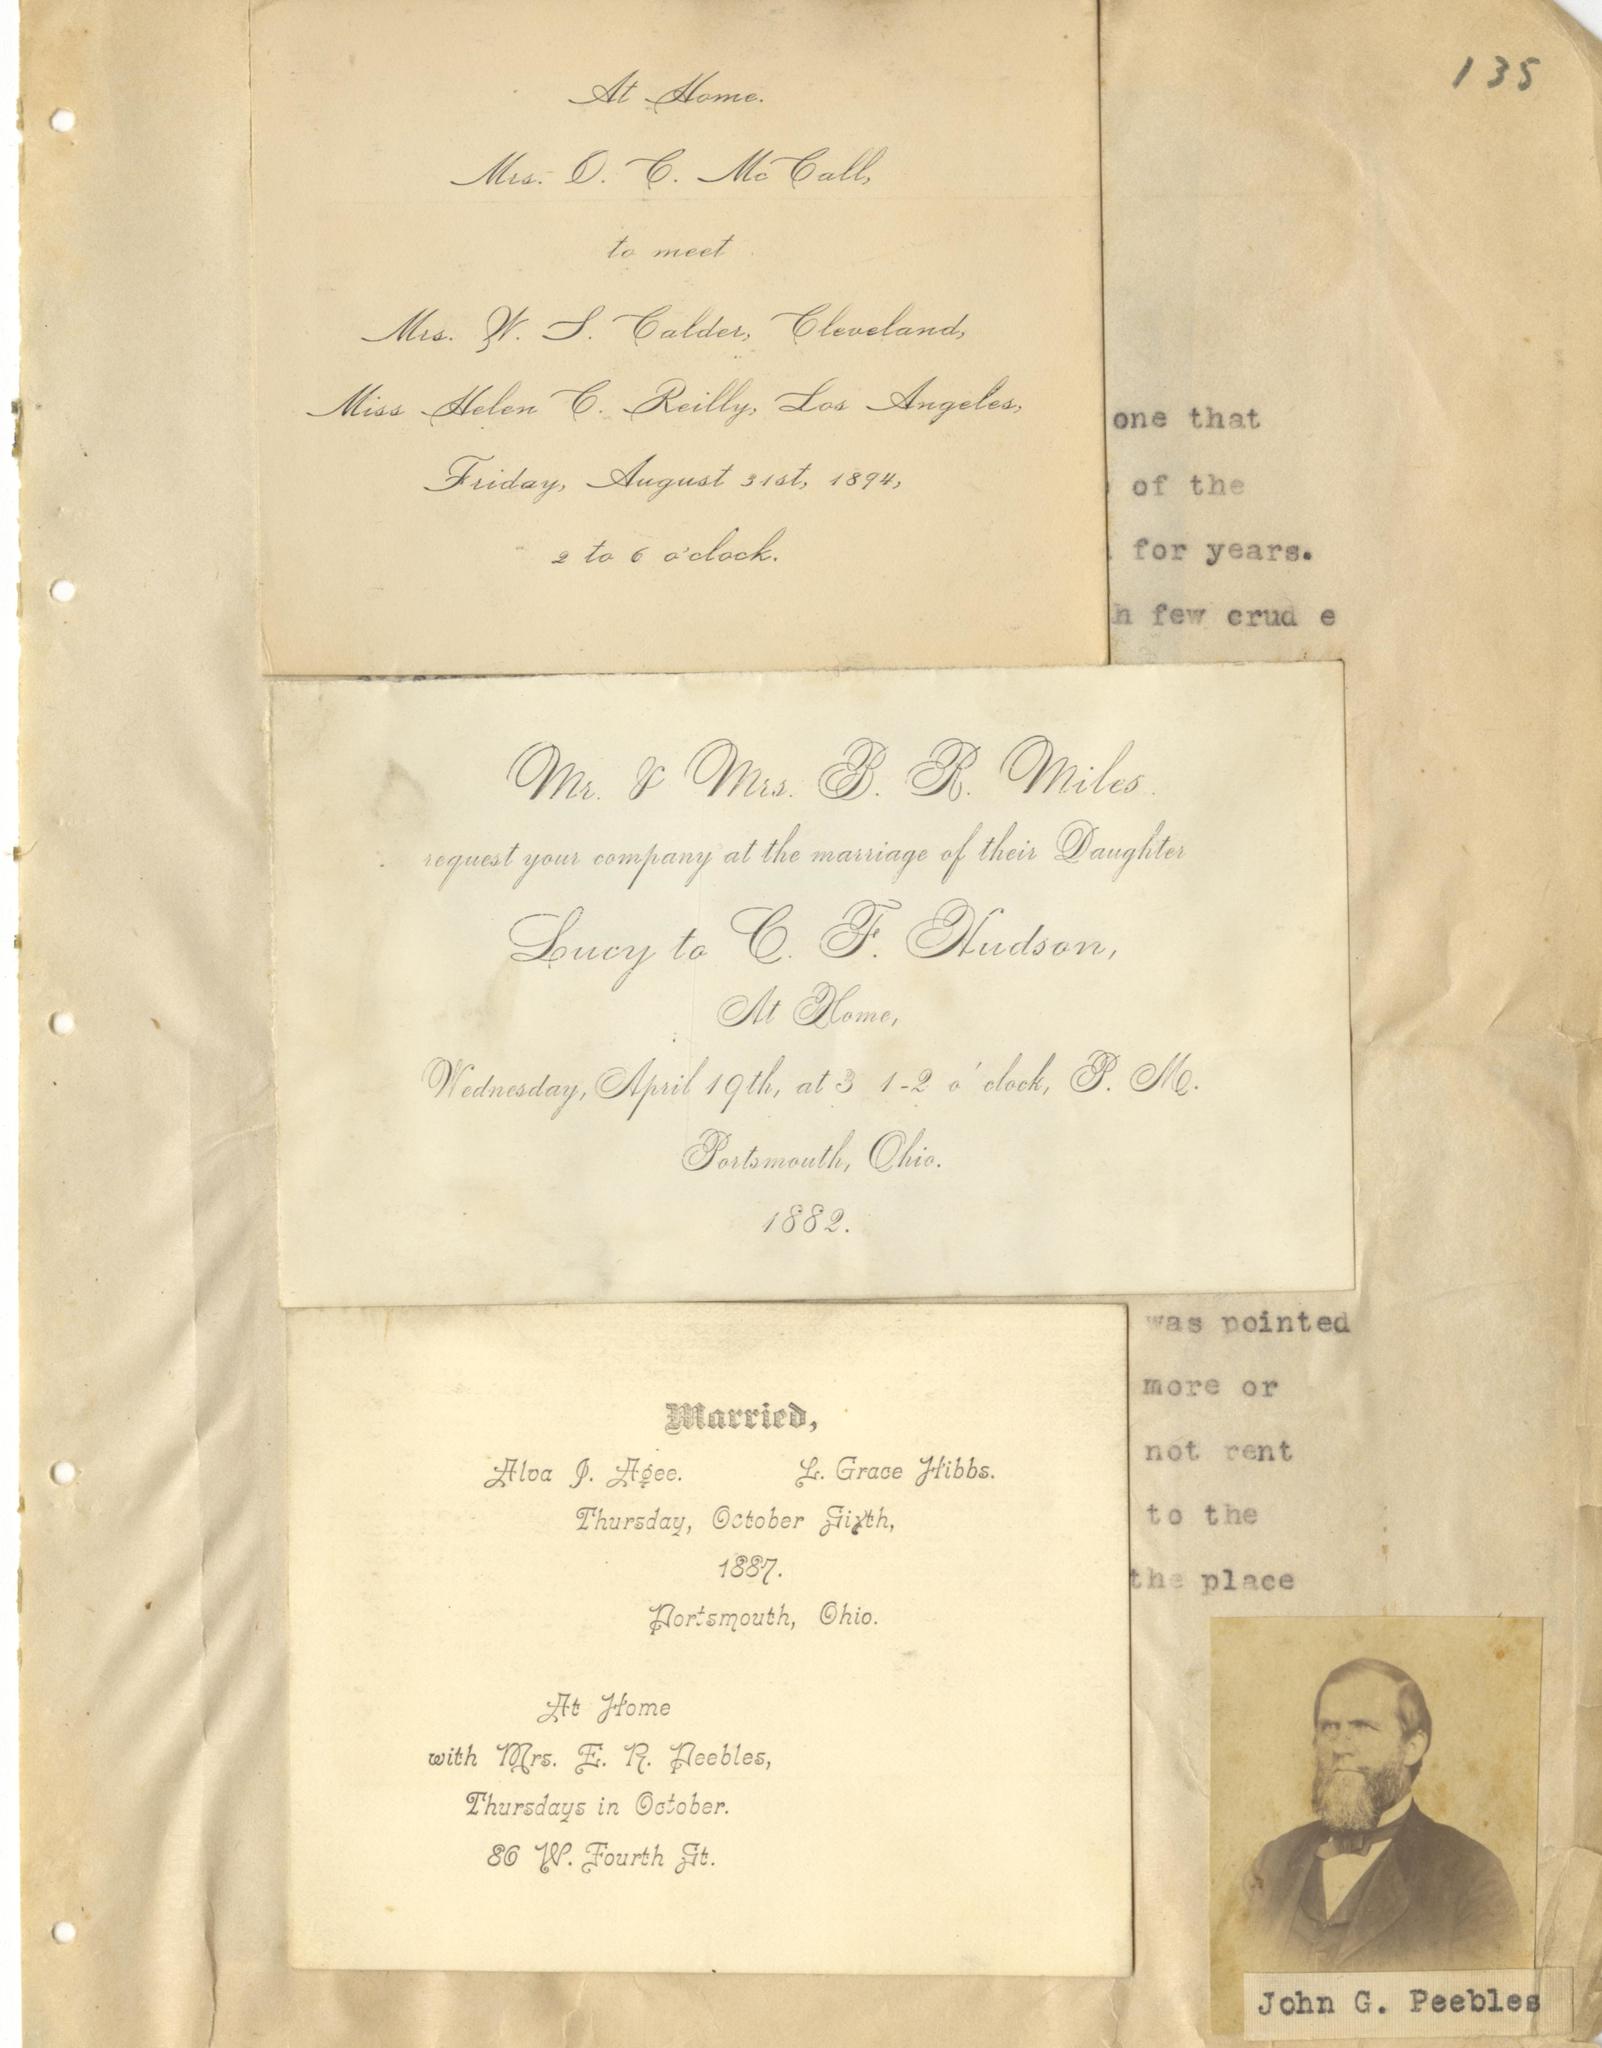 135
At Home.
Mrs. O. C. McCall,
to meet
Mrs. W. S. Calder, Cleveland,
Miss Helen C. Reilly, Los Angeles,
Friday, August 31st, 1894,
2 to 6 o'clock.
one that
of the
for years.
h few crud e
Mr. & Mrs. B. R. Miles
request your company at the marriage of their Daughter
Lucy to C. F. Hudson,
At Home,
Wednesday, April 19th, at 3 1-2 o'clock, P. M.
Portsmouth, Ohio.
1882.
was pointed
more or
not rent
to the
the place
Married,
Alva J. Agee. L. Grace Hibbs.
Thursday, October Sixth,
1887.
Portsmouth, Ohio.
At Home
with Mrs. E. R. Peebles,
Thursdays in October.
86 W. Fourth St.
John G. Peebles